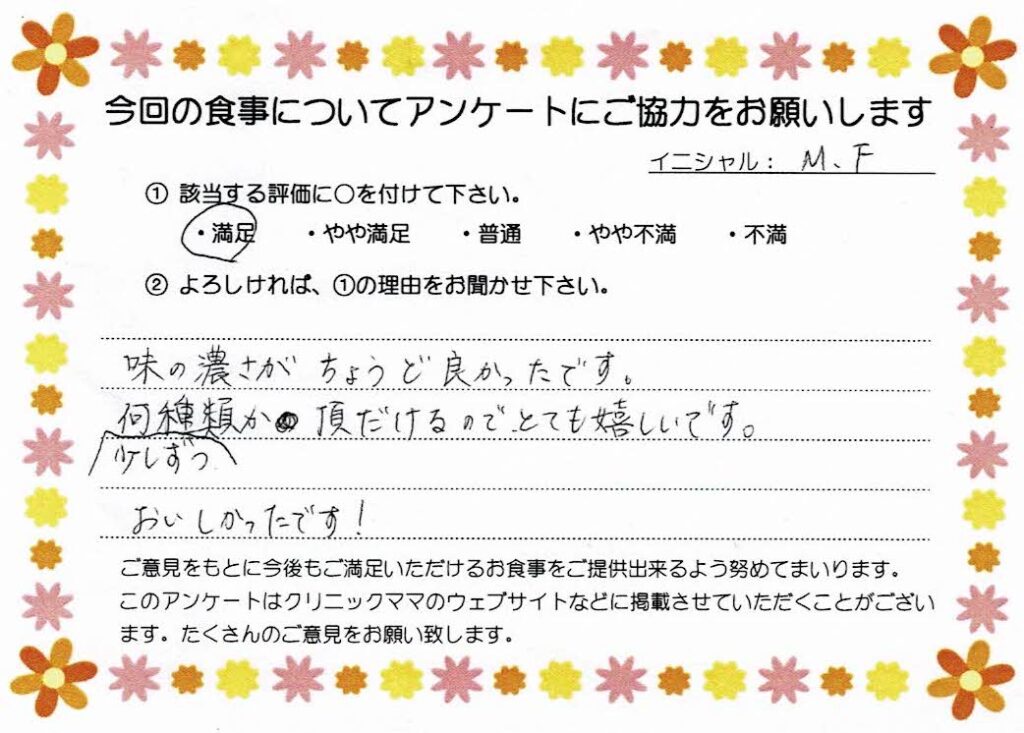 今回の食事についてアンケートにご協力をお願いします
イニシャル： M、F
① 該当する評価に○を付けて下さい。
・満足 ・やや満足 ・普通 ・やや不満 ・不満
② よろしければ、①の理由をお聞かせ下さい。
味の濃さが ちょうど良かったです。
何種類か 頂だけるのでとても嬉しいです。
少しずつ
おいしかったです！
ご意見をもとに今後もご満足いただけるお食事をご提供出来るよう努めてまいります。
このアンケートはクリニックママのウェブサイトなどに掲載させていただくことがござい
ます。たくさんのご意見をお願い致します。